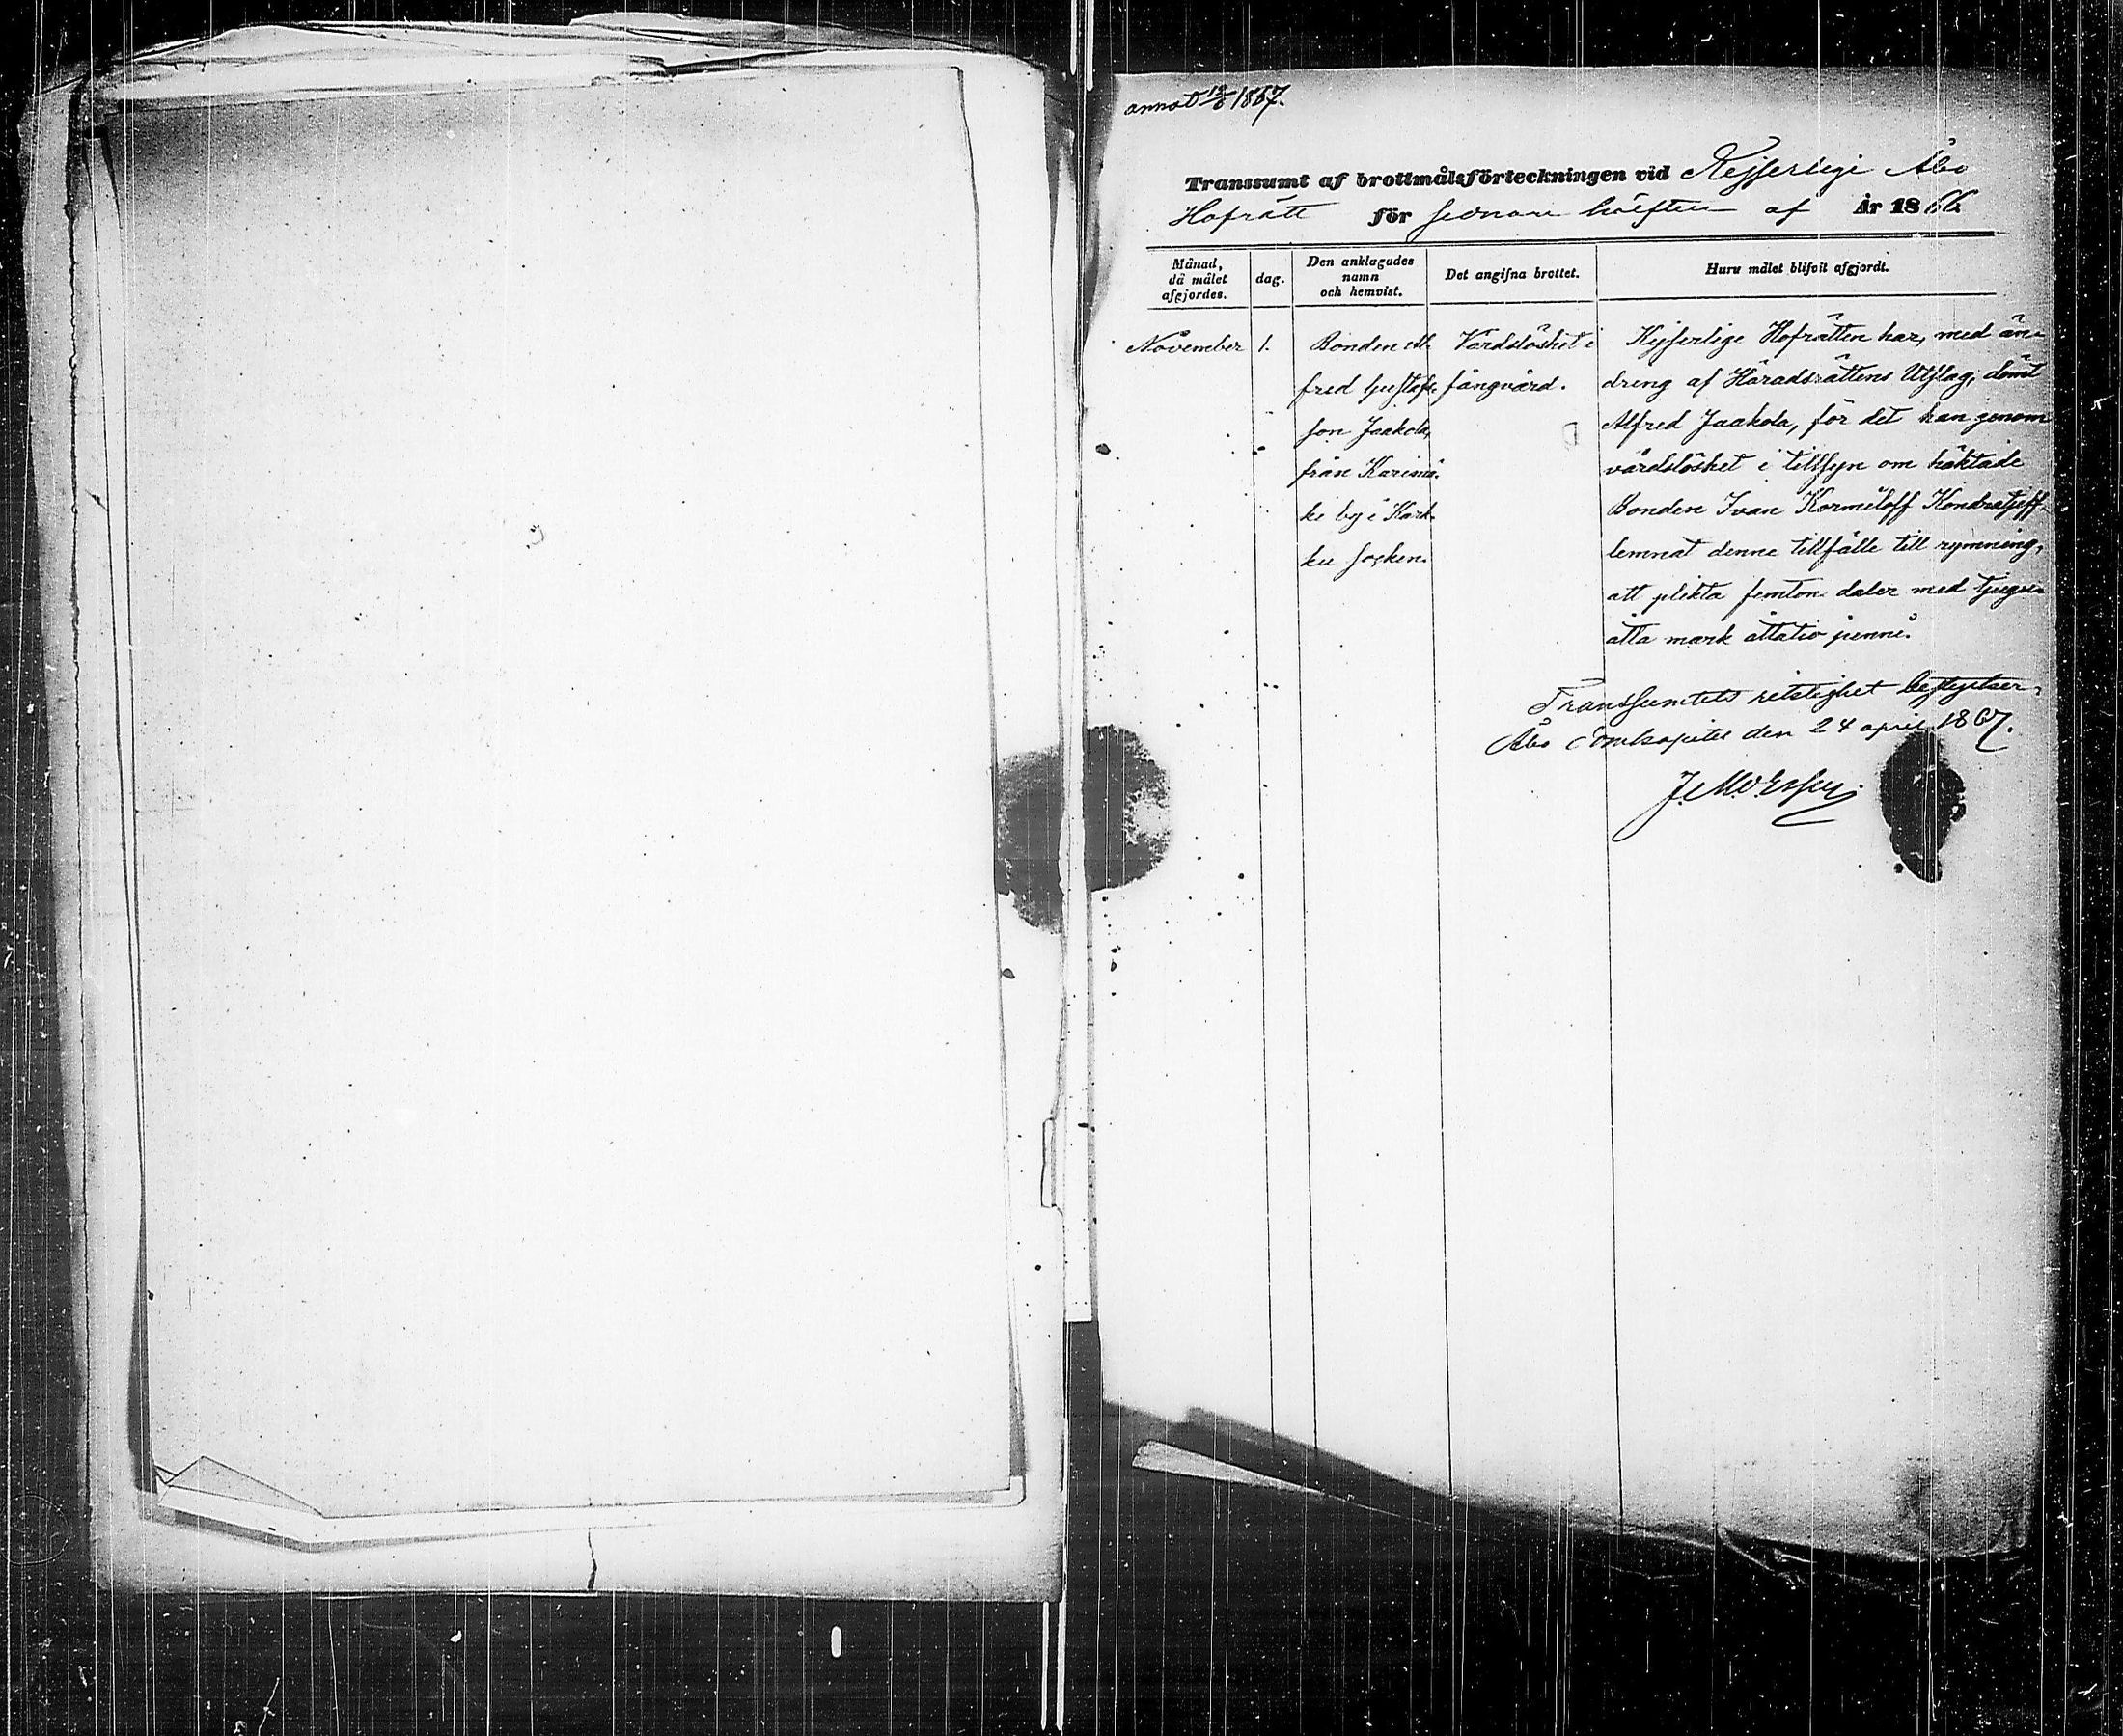 annot 12/6 1867.
Transsumt af brottmålsförteckningen vid Kejserlige Åbo
Hofrätt för sednare hälften af År 1866
Månad,
då målet
afgjordes.
dag.
Den anklagades
namn
och hemvist.
Det angifna brottet.
Huru målet blifvit afgjordt.
November 1. Bonden Al- Vårdslöshet i Kejserlige Hofrätten har, med än-
fred Gustafs- fångvård. dring af Häradsrättens Utslag, dömt
son Jaakola, Alfred Jaakola, för det han genom
från Karimä- vårdslöshet i tillsyn om häktade
ki by i Kark- Bonden Ivan Kormeloff Kondratjeff
ku socken. lemnat denne tillfälle till rymning,
att plikta femton daler med tjugu-
åtta mark åttatio penni.
Transsumtets riktighet bestyrker,
Åbo Domkapitel den 24 april 1867.